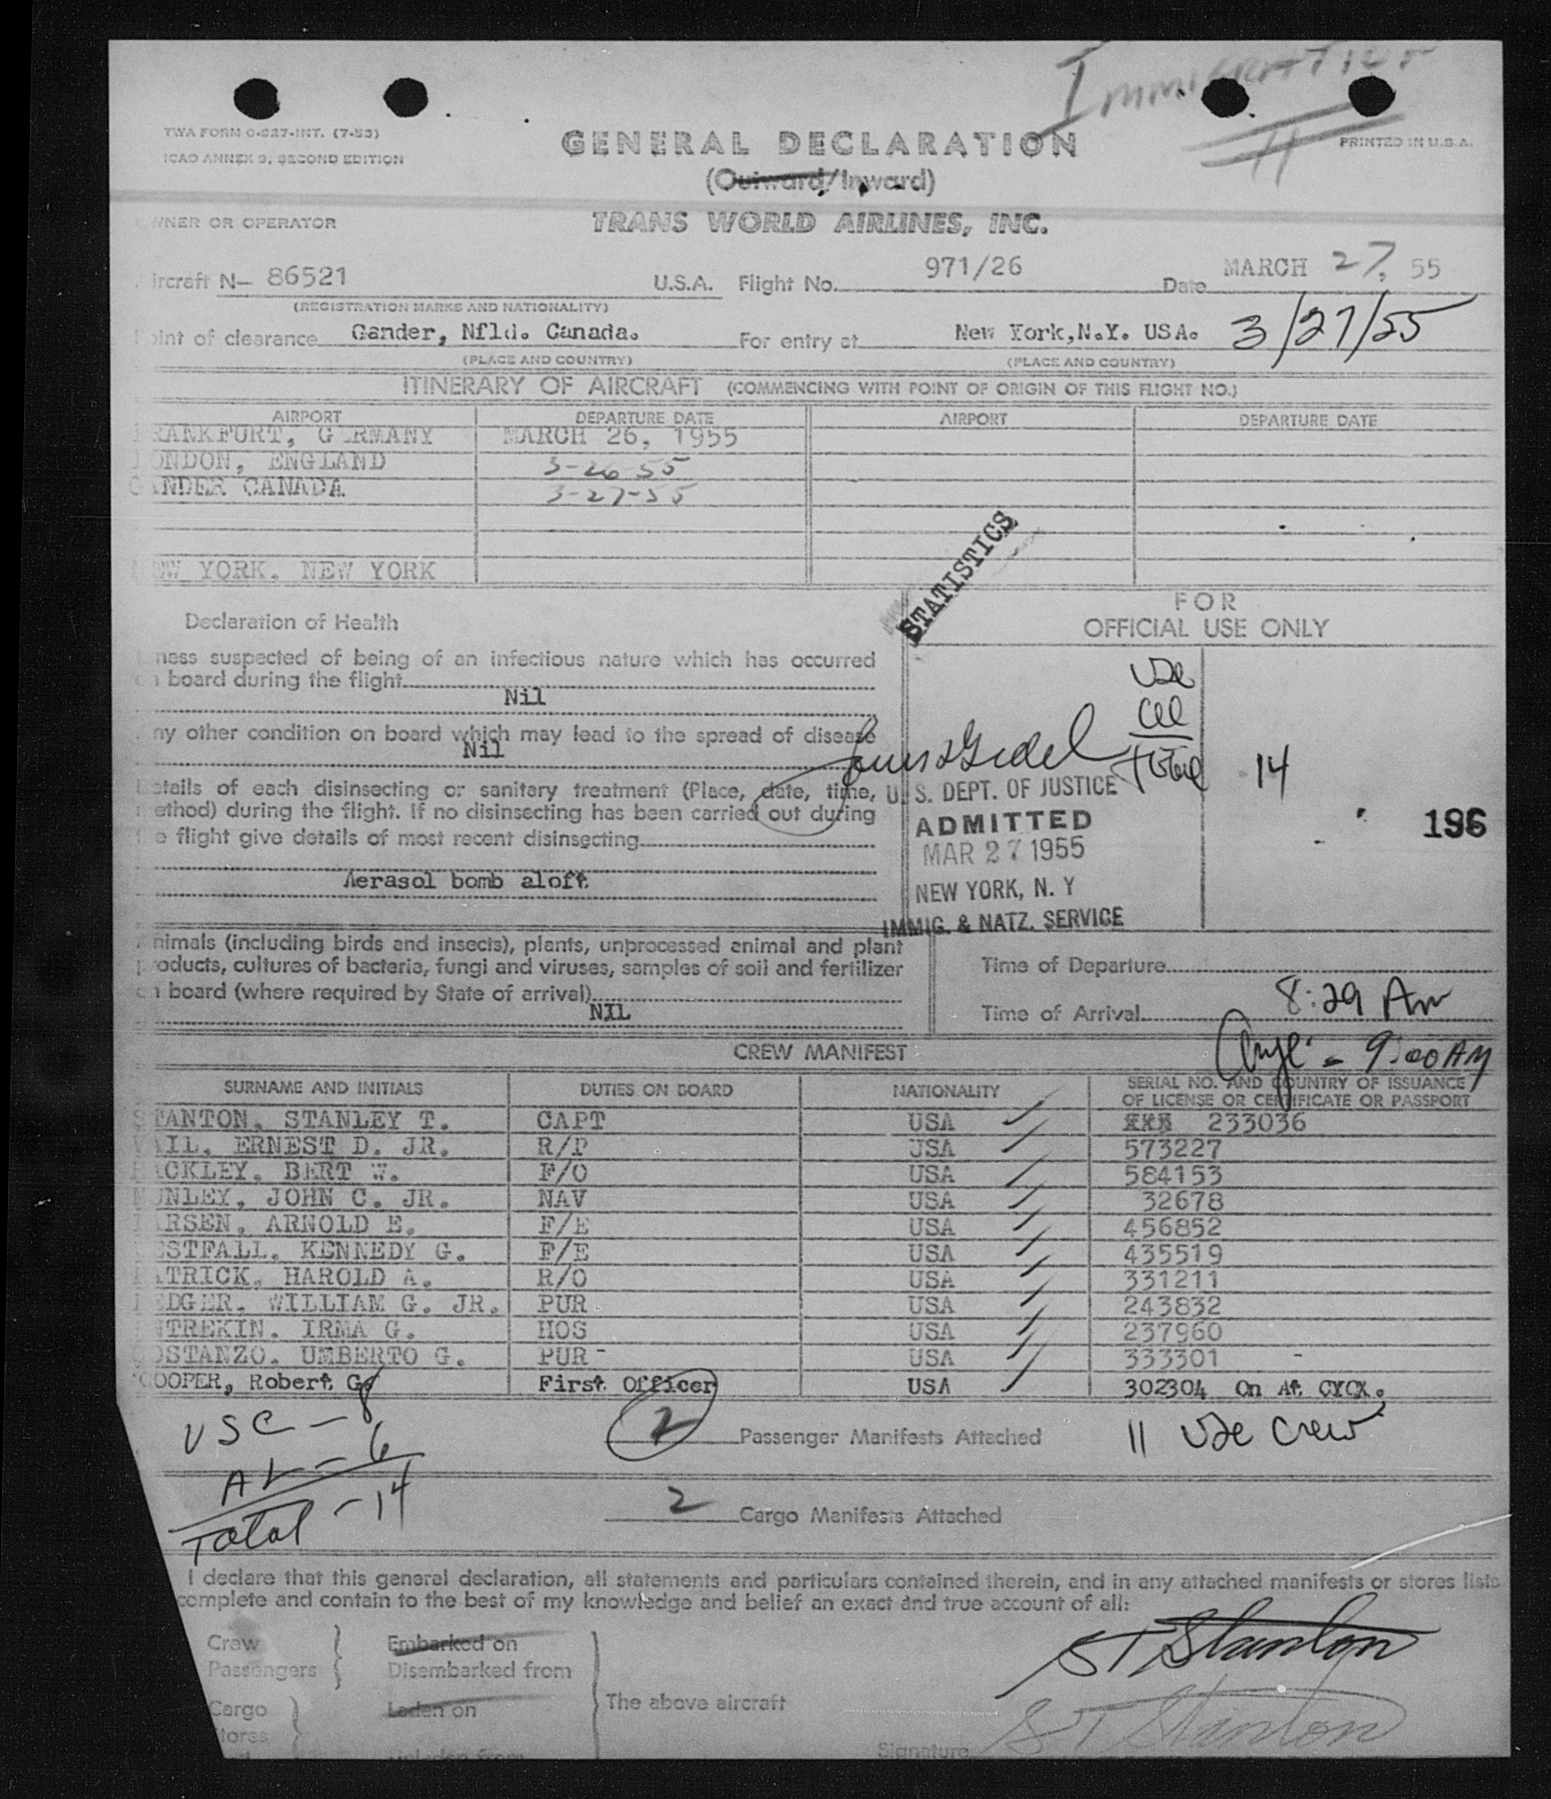 Immigration
11
TWA FORM O-827-INT. (7-53)
ICAO ANNEX 9, SECOND EDITION
GENERAL DECLARATION
PRINTED IN U.S.A.
(Outward/Inward)
WNER OR OPERATOR
TRANS WORLD AIRLINES, INC.
ircraft N- 86521 U.S.A. Flight No. 971/26 Date MARCH 27, 55
(REGISTRATION MARKS AND NATIONALITY)
oint of clearance Gander, Nfld. Canada. For entry at New York,N.Y. USA. 3/27/55
(PLACE AND COUNTRY) (PLACE AND COUNTRY)
ITINERARY OF AIRCRAFT (COMMENCING WITH POINT OF ORIGIN OF THIS FLIGHT NO.)
AIRPORT DEPARTURE DATE AIRPORT DEPARTURE DATE
RANKFURT, G RMANY MARCH 26, 1955
ONDON, ENGLAND 3-26-55
GANDER CANADA 3-27-55
EW YORK. NEW YORK
STATISTICS
FOR
OFFICIAL USE ONLY
Declaration of Health
ness suspected of being of an infectious nature which has occurred
n board during the flight
Nil
ny other condition on board which may lead to the spread of disease
Nil
etails of each disinsecting or sanitary treatment (Place, date, time,
ethod) during the flight. If no disinsecting has been carried out during
e flight give details of most recent disinsecting
Aerasol bomb aloft
Total 14
U.S. DEPT. OF JUSTICE
ADMITTED
MAR 27 1955
NEW YORK, N. Y
IMMIG. & NATZ. SERVICE
196
nimals (including birds and insects), plants, unprocessed animal and plant
roducts, cultures of bacteria, fungi and viruses, samples of soil and fertilizer
n board (where required by State of arrival)
NIL
Time of Departure
Time of Arrival 8:29 Am
9:00 AM
CREW MANIFEST
SURNAME AND INITIALS DUTIES ON BOARD NATIONALITY SERIAL NO. AND COUNTRY OF ISSUANCE
OF LICENSE OR CERTIFICATE OR PASSPORT
STANTON, STANLEY T. CAPT USA XXX 233036
VAIL, ERNEST D. JR. R/P USA 573227
ACKLEY, BERT W. F/O USA 584153
NLEY, JOHN C. JR. NAV USA 32678
ARSEN, ARNOLD E. F/E USA 456852
ESTFALL, KENNEDY G. F/E USA 435519
ATRICK, HAROLD A. R/O USA 331211
EDGER, WILLIAM G. JR. PUR USA 243832
NTREKIN, IRMA G. HOS USA 237960
OSTANZO, UMBERTO G. PUR - USA 333301 -
COOPER, Robert G. First Officer USA 302304 On At CYQX.
USC - 8
2 Passenger Manifests Attached 11 USc crew
AL - 6
Total - 14
2 Cargo Manifests Attached
I declare that this general declaration, all statements and particulars contained therein, and in any attached manifests or stores lists
complete and contain to the best of my knowledge and belief an exact and true account of all:
Crew Embarked on
Passengers Disembarked from
Cargo Laden on
tores
The above aircraft
Unladen from
ST Stanton
Signature ST Stanton